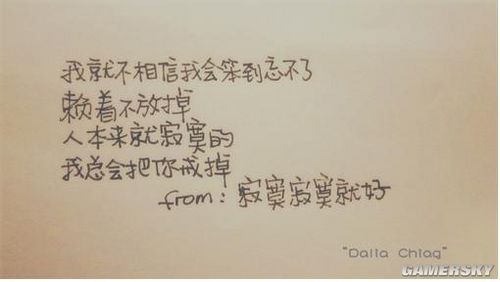 我就不相信我会笨到忘不了
赖着不放掉
人本来就寂寞的
我总会把你戒掉
from：寂寞寂寞就好
"Dalla Chlag"
GAMERSKY